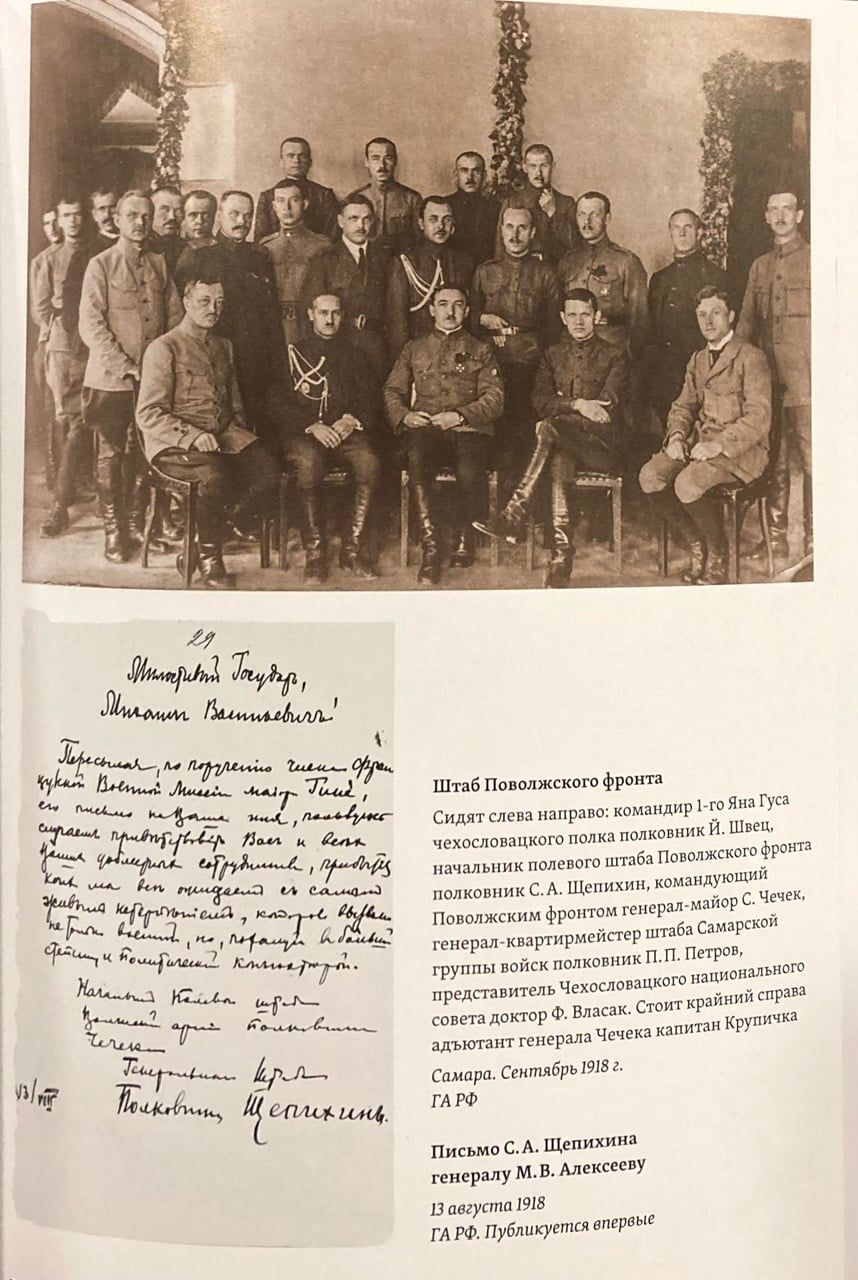 29
Милостивый Государь,
Михаил Васильевичъ!
Пересылая, по порученію члена Фран
цузской Военной Миссіи майора Гинэ,
его письмо на Ваше имя, пользуюсь
случаемъ привѣтствовать Васъ и всѣхъ
Вашихъ доблестныхъ сотрудниковъ,
мы всѣ ожидаемъ съ самымъ
живымъ нетерпѣніемъ,
но,
и политической
Начальникъ Полевого штаба
арміи Полковника
Чечека
Генеральнаго Штаба
Полковникъ Щепихинъ.
13/VIII
Штаб Поволжского фронта
Сидят слева направо: командир 1-го Яна Гуса
чехословацкого полка полковник Й. Швец,
начальник полевого штаба Поволжского фронта
полковник С. А. Щепихин, командующий
Поволжским фронтом генерал-майор С. Чечек,
генерал-квартирмейстер штаба Самарской
группы войск полковник П. П. Петров,
представитель Чехословацкого национального
совета доктор Ф. Власак. Стоит крайний справа
адъютант генерала Чечека капитан Крупичка
Самара. Сентябрь 1918 г.
ГА РФ
Письмо С. А. Щепихина
генералу М. В. Алексееву
13 августа 1918
ГА РФ. Публикуется впервые